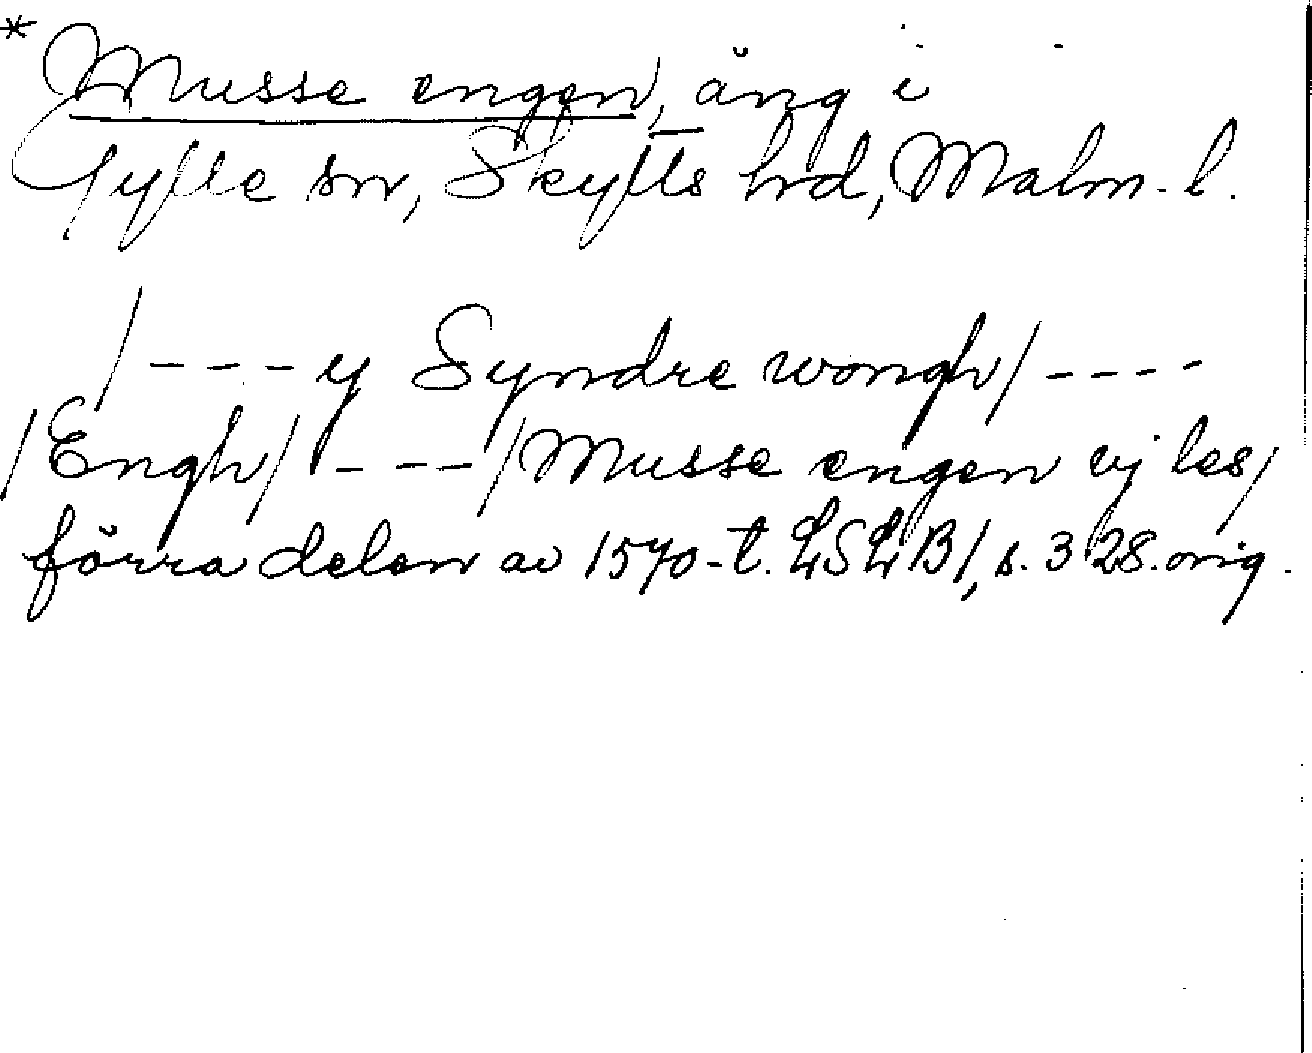 * Musse engen, äng i
Gylle sn, Skytts hrd, Malm. l.
/---y Syndre wongh/----
/Engh/ ---/Musse engen vj les/
förra delen av 1570-t. LSLB/, s. 328. orig.